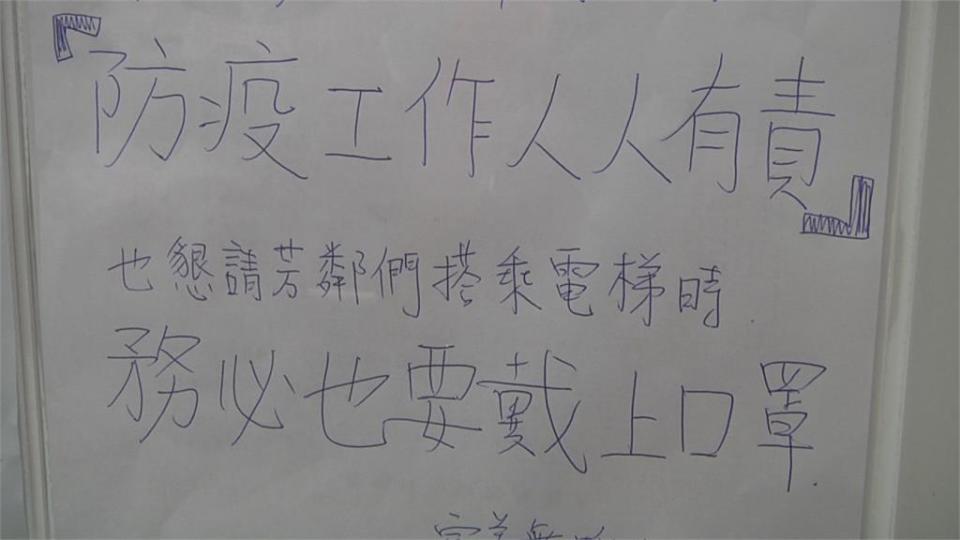 『防疫工作人人有責』
也懇請芳鄰們搭乘電梯時
務必也要戴上口罩.